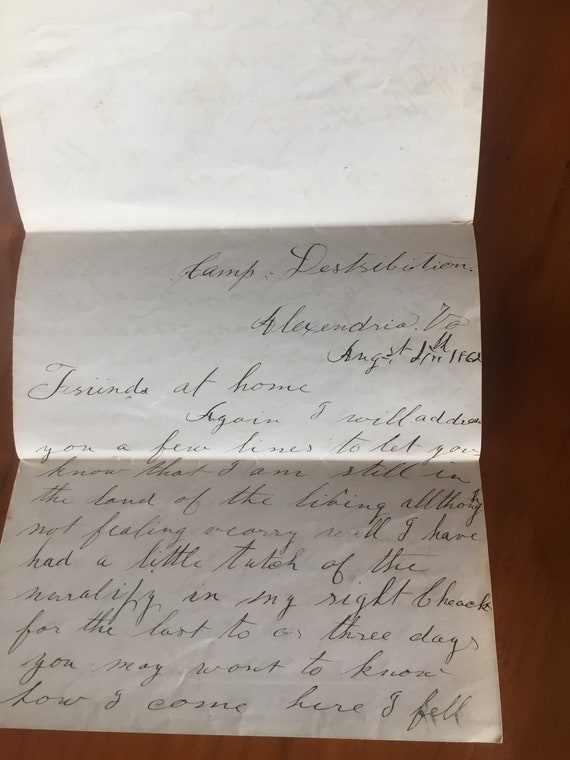 Camp - Destribition.
Alexendria. Va
Augst 1862
Friends at home
Again I will address
you a few lines to let you
know that I am still in
the land of the living allthough
not fealing vearry well I have
had a little tutch of the
nuralify in my right Cheack
for the last to or three days
you may want to know
how I come here I fell